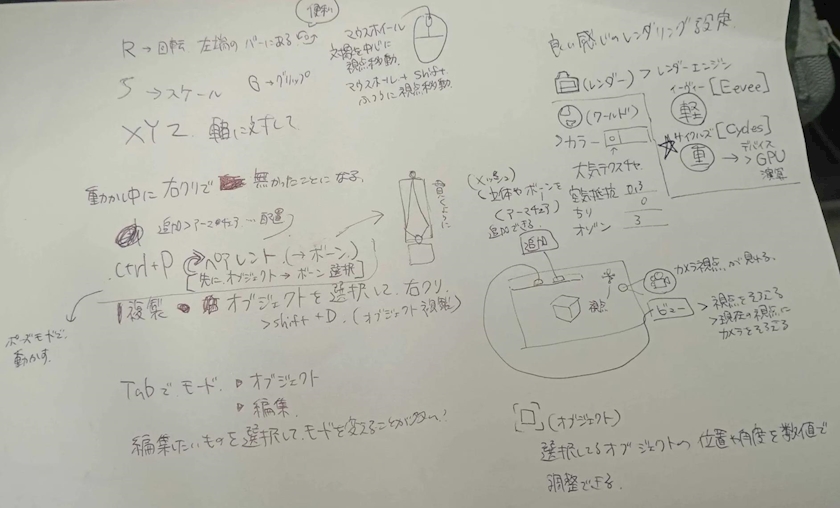 便利
R → 回転 左端の バーにある
S → スケール G → グリップ
X Y Z. 軸に対して
マウスホイール
視点移動
マウスホール + Shift
ふつうに視点移動
動かし中に右クリで 無かったことになる
追加 > アーマチュア … 配置
ctrl+P ペアレント (→ ボーン)
[先に オブジェクト → ボーン 選択]
ポーズモードで
動かす
複製 オブジェクトを選択して 右クリ
> shift + D. (オブジェクト複製)
Tab で モード. ▷ オブジェクト
▷ 編集.
編集したいものを選択して、モードを変えることが
良い感じのレンダリング設定
(レンダー) > レンダーエンジン
イーヴィー [Eevee]
軽
サイクルズ [Cycles]
重 → デバイス
> GPU
演算
(ワールド)
> カラー
大気テクスチャ
空気抵抗 0.3
ちり 0
オゾン 3
(メッシュ)
(立体やボーンを
(アーマチュア)
追加できる
追加
視点
カメラ視点が見れる.
ビュー > 視点をそろえる
> 現在の視点に
カメラをそろえる
(オブジェクト)
選択してるオブジェクトの 位置や角度を数値で
調整できる.